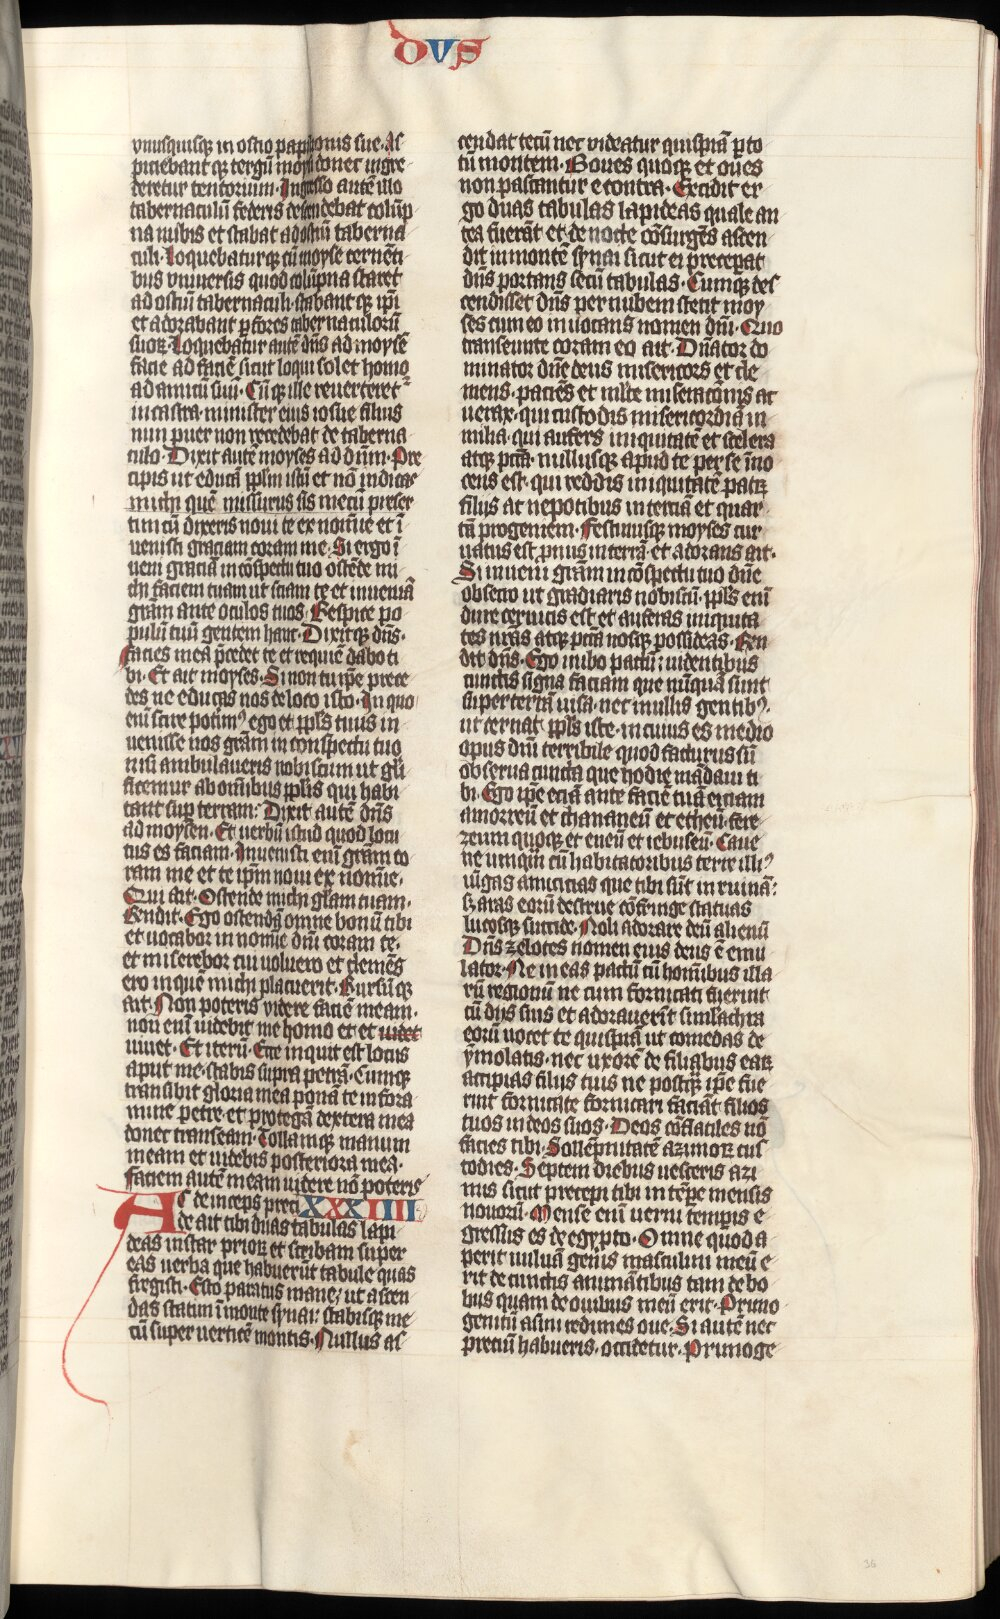 DVS
vnusquisq; in ostio papilionis sue. As
piciebant q; tergū moysi donec ingre
deretur tentorium. Ingresso autē illo
tabernaculū federis descendebat colūp
na nubis et stabat ad ostiū taberna
culi. Loquebaturq; cū moyse cernēti
bus vniuersis quod colūpna staret
ad ostiū tabernaculi. stabant q; ip̄i
et adorabant p̄ fores tabernaculorū
suoꝝ. Loquebatur autē dn̄s ad moysē
facie ad faciē sicut loqui solet homo
ad amicū suū. Cū q; ille reuerteret᷑
in castra. minister eius iosue filius
nun puer non recedebat de taberna
culo. Dixit autē moyses ad dn̄m. Pre
cipis ut educā ppl̄m istū et nō indicas
michi quē missurus sis mecū preser
tim cū dixeris noui te ex nomīe et ī
uenisti graciam coram me. Si ergo ī
ueni graciā in cōspectu tuo ostēde mi
chi faciem tuam ut sciam te et inueniā
grām ante oculos tuos. Respice po
pulū tuū gentem hanc. Dixit q; dn̄s.
facies mea p̄cedet te et requiē dabo ti
bi. Et ait moyses. Si non tu ip̄e prece
des ne educas nos de loco isto. In quo
enī scire poterimꝰ ego et ppl̄s tuus in
uenisse nos grām in conspectu tuo
nisi ambulaueris nobiscum ut glī
ficemur ab omībus ppl̄is qui habi
tant sup terram. Dixit autē dn̄s
ad moysen. Et verbū istud quod locu
tus es faciam. Inuenisti enī grām co
ram me et te ip̄m noui ex nomīe.
Qui ait. Ostende michi gl̄am tuam.
Rendit. Ego ostendā omne bonū tibi
et uocabor in nomīe dn̄i coram te.
et miserebor cui uoluero et clemēs
ero in quē michi placuerit. Rursū q;
ait. Non poteris videre faciē meam.
non enī uidebit me homo et et uidet
uiuet. Et iterū. Ecce inquit est locus
aput me. stabis supra petrā. Cumq;
transibit gloria mea ponā te in fora
mine petre. et protegā dextera mea
donec transeam. Tollamq; manum
meam et uidebis posteriora mea.
faciem autē meam uidere nō poteris
Ac deinceps preci XXXIIII
de ait tibi duas tabulas lapi
deas instar prioꝝ et scribam super
eas uerba que habuerūt tabule quas
fregisti. Esto paratus mane, ut ascen
das statim ī monte synai. stabisq; me
cū super uerticē montis. Nullus as
cendat tecū nec videatur quispiā p̄ to
tū montem. Boues quoq; et oues
non pascantur e contra. Excidit er
go duas tabulas lapideas quale an
tea fuerāt et de nocte cōsurgēs ascen
dit in montē synai sicut ei preceperat
dn̄s portans secū tabulas. Cumq; des
cendisset dn̄s per nubem stetit moy
ses cum eo inuocans nomen dn̄i. Quo
transeunte coram eo ait. Dn̄ator do
minator dn̄e deus misericors et cle
mens. paciēs et mlt̄e miseracōnis ac
uerax. qui custodis misericordiā in
milia. qui aufers iniquitatē et scelera
atq; pctā. nullusq; apud te per se īno
cens est. qui reddis iniquitatē patꝝ
filijs ac nepotibus in terciā et quar
tā progeniem. Festinusq; moyses cur
uatus est pronus in terrā et adorans ait.
Si inueni grām in cōspectu tuo dn̄e
obsecro ut gradiaris nobiscū. ppl̄s enī
dure ceruicis est et auferas iniquita
tes nr̄as atq; pctā nosq; possideas. Ren
dit dn̄s. Ego inibo pactū. uidentibus
cunctis signa faciam que nūquā sunt
super terrā uisa. nec in ullis gentibꝰ.
ut cernat ppl̄s iste. in cuius es medio
opus dn̄i terribile quod facturus sū
obserua cuncta que hodie mādaui ti
bi. Ego ip̄e eciā ante faciē tuā eiciam
amorreū et chananeū et etheū. fere
zeum quoq; et eueū et iebuseū. Caue
ne umqm̄ cū habitatoribus terre illiꝰ
iūgas amicicias que tibi sūt in ruinā:
sꝫ aras eorū destrue cōfringe statuas
lucosq; succide. Noli adorare deū alienū
Dn̄s zelotes nomen eius deus ē emu
lator. Ne ineas pactū cū homībus illa
rū regionū ne cum fornicati fuerint
cū dijs suis et adorauerīt simlachra
eorū uocet te quispiā ut comedas de
ymolatis. nec uxorē de filiabus eaꝝ
accipias filijs tuis ne postq̄ ip̄e fue
rint fornicate fornicari faciāt filios
tuos in deos suos. Deos cōflatiles nō
facies tibi. Sollēpnitatē azimoꝝ cus
todies. Septem diebus uesceris azi
mis sicut precepi tibi in tēpe mensis
nouorū. Mense enī uerni temp̄is e
gressus es de egypto. Omne quod a
perit uuluā gen̄is masculini meū e
rit de cunctis animātibus tam de bo
bus quam de ouibus meū erit. Primo
genitū asini redimes oue. Si autē nec
preciū habueris. occidetur. Primoge
36